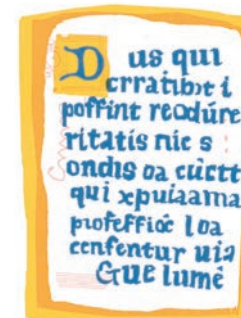 Dus qui
crratibit i
poffint reodúre
ritatis nie s
ondis oa cùctt
qui xpuiaama
profeffioé loa
cenfentur uia
Gue lumê